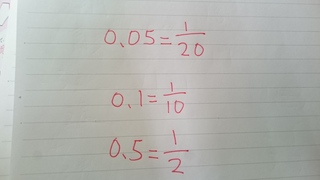 0.05=1/20
0.1=1/10
0.5=1/2